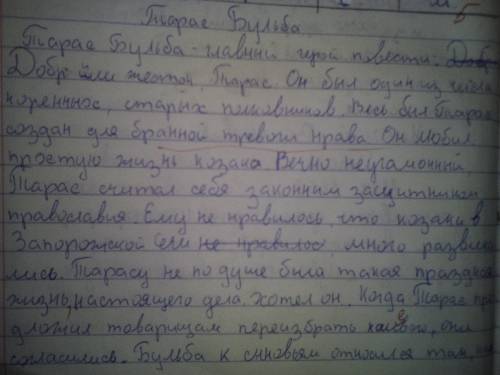 Тарас Бульба
Тарас Бульба - главний герой повести. Доб
Добр или жесток, Тарас. Он был один из числа
коренных, старых полковников. Весь был Тарас
создан для бранной тревоги нрава. Он любил
простую жизнь козака. Вечно неугамонный,
Тарас считал себя законним защитником
православья. Ему не нравилось, что козаки в
Запорожской Сечи не нравилос много развлека
лись. Тарасу не по душе была такая праздная
жизнь, настоящего дела хотел он. Когда Тарас пре
дложил товарищам переизбрать они
согласились. Бульба к синовьям относился так,